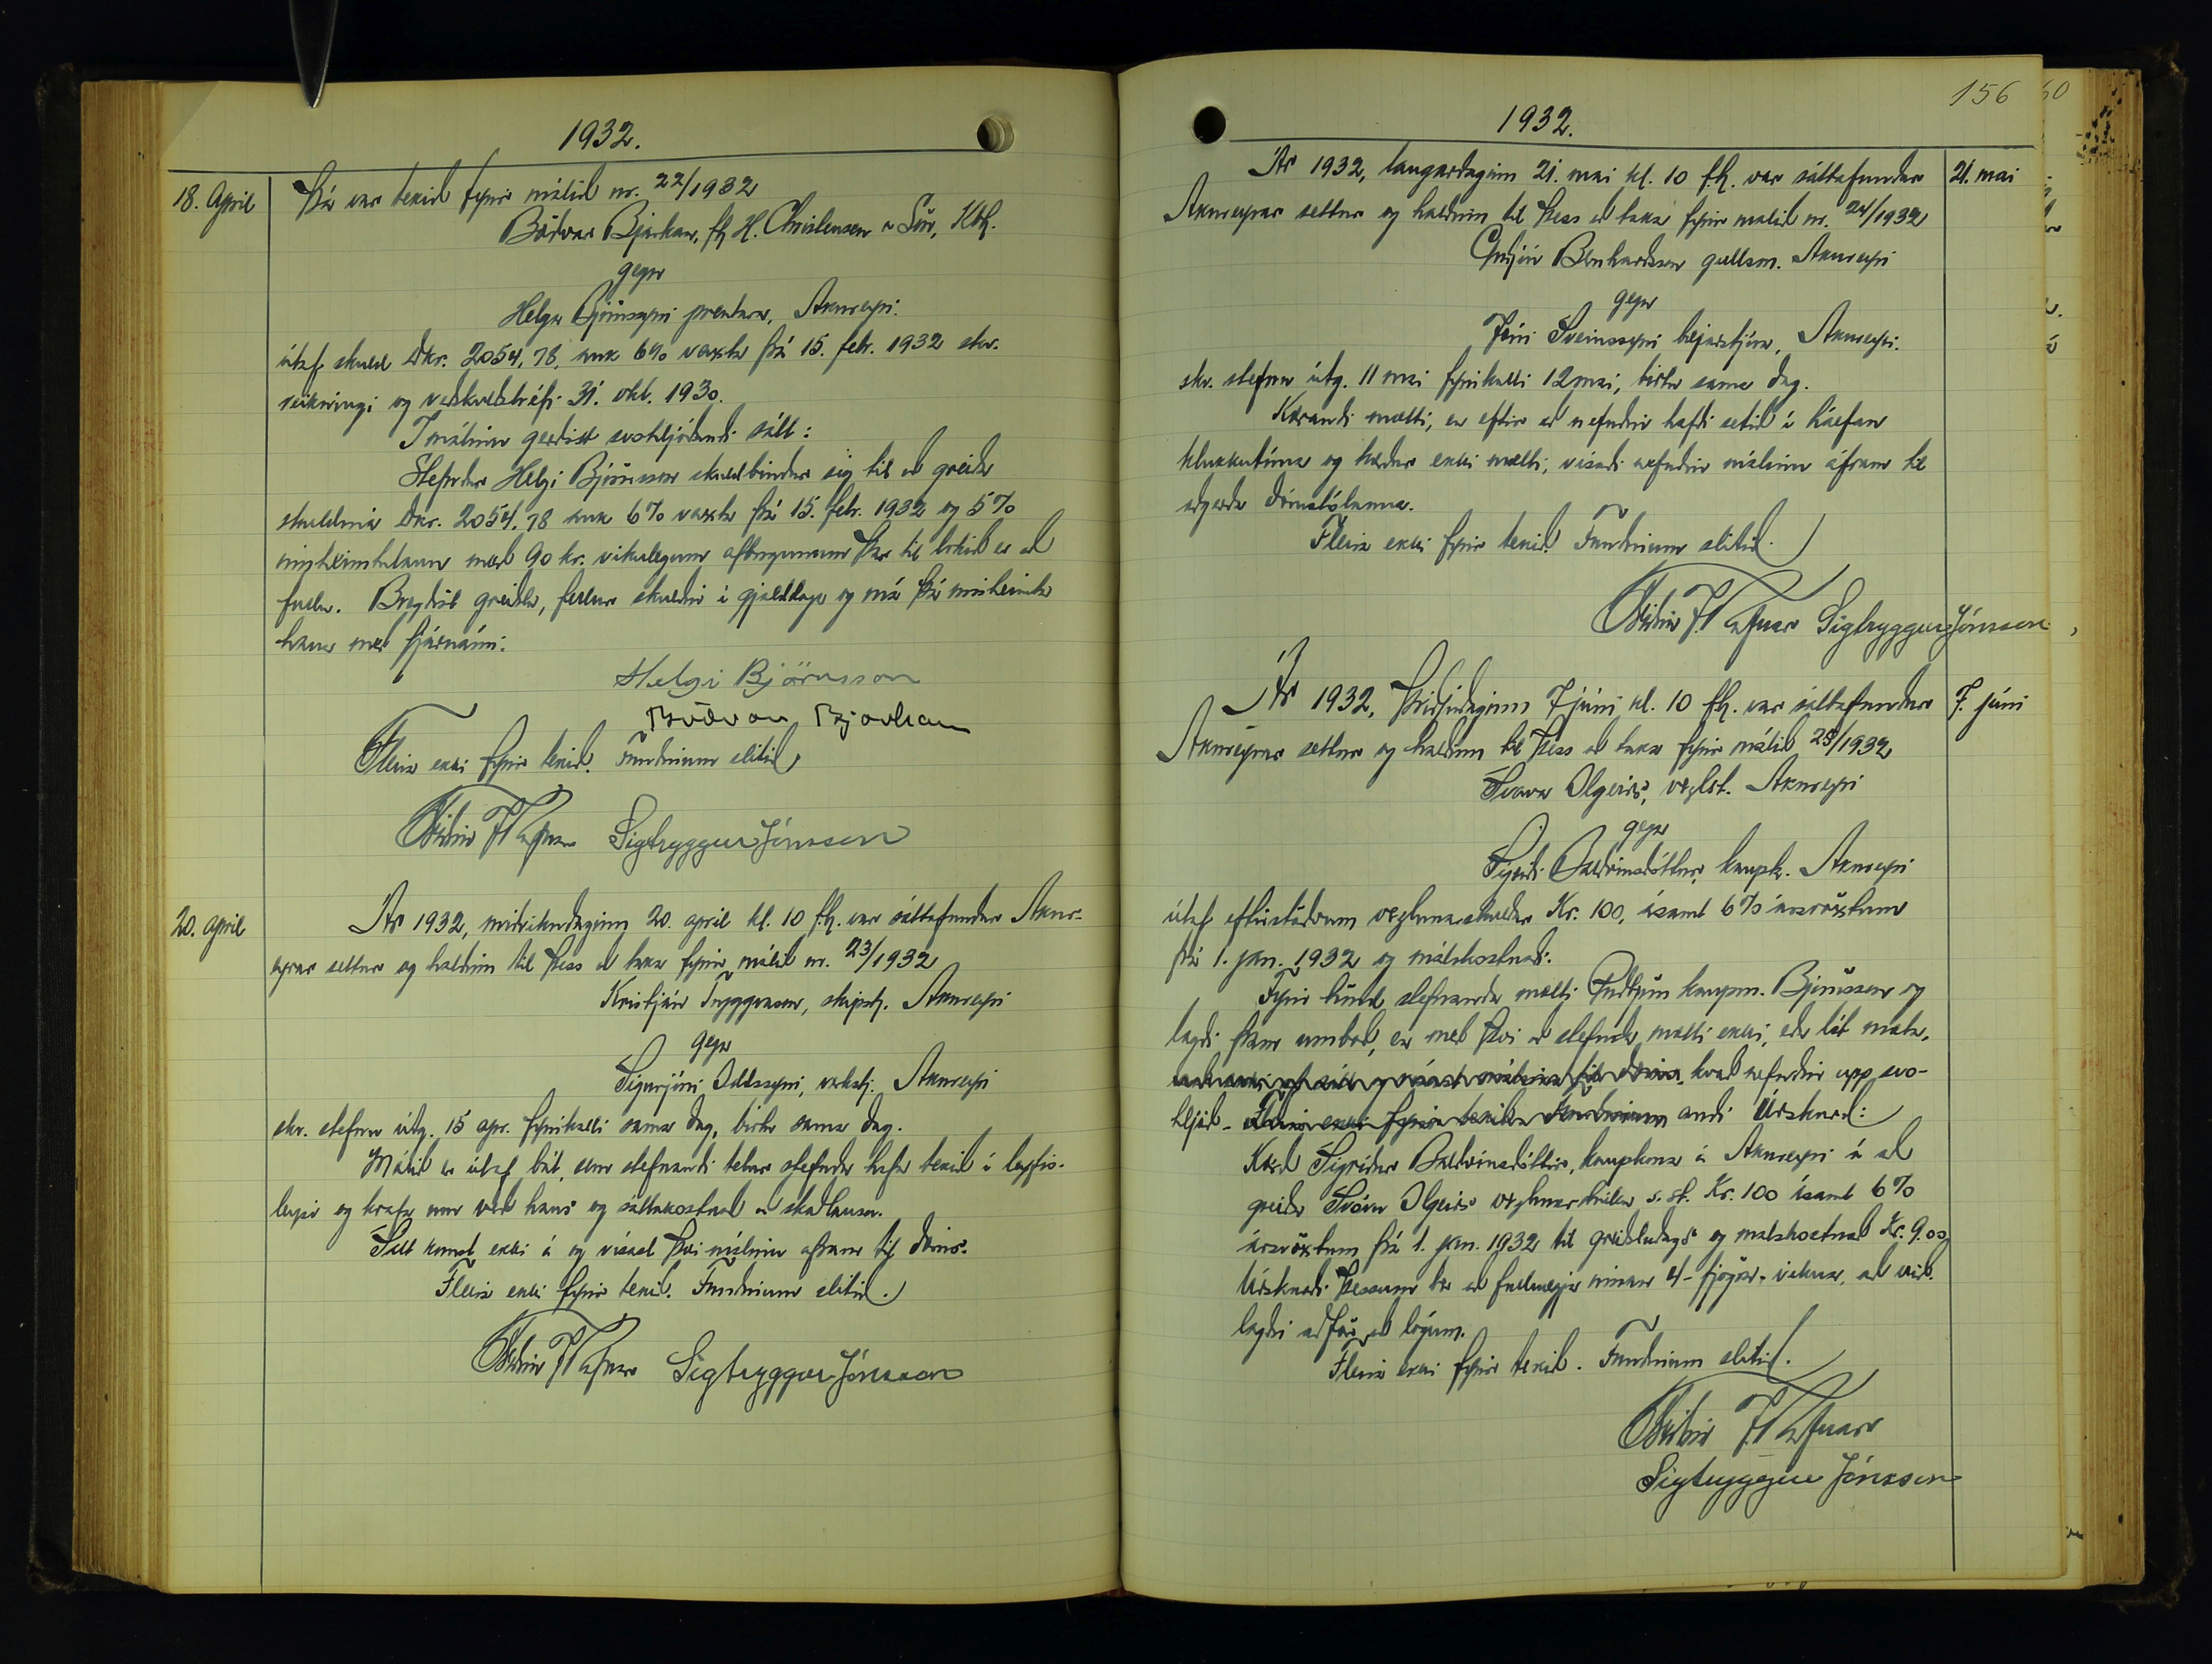 1932.
18. April
Þá var tekið fyrir málið nr. 22/1932
Böðvar Bjarkan, fh H. Christensen & Sön, Kbh.
gegn
Helga Björnssyni prentara, Akureyri.
útaf skuld Dkr. 2054,78, auk 6% vaxta frá 15. febr. 1932 skv.
reikningi og veðskuldabréfi 31. okt. 1930.
Í málinu gerðist svohljóðandi sátt:
Stefndur Helgi Björnsson skuldbindur sig til að greiða
skuldina Dkr. 2054.78 auk 6% vaxta frá 15. febr. 1932 og 5%
innheimtulaun með 90 kr. vikulegum afborgunum þar til lokið er að
fullu. Bregðist greiðsla, fellur skuldin í gjalddaga og má þá innheimta
hana með fjárnámi.
Helgi Björnsson
Böðvar Bjarkan
Fleira ekki fyrir tekið. Fundinum slitið
Sigtryggur Jónsson
20. apríl
Ár 1932, miðvikudaginn 20. apríl kl. 10 f.h. var sáttafundur Akur-
eyrar settur og haldinn til þess að taka fyrir málið nr. 23/1932
Kristján Tryggvason, skipstj. Akureyri
gegn
Sigurjóni Oddssyni, verkstj. Akureyri
skv. stefnu útg. 15 apr. fyrirkalli sama dag, birtu sama dag.
Málið er útaf bát, sem stefnandi telur stefnda hafa tekið í leyfis-
leysi og krafa um verð hans og sáttakostnað að skaðlausu.
Sátt komst ekki á og vísast því málinu áfram til dóms.
Fleira ekki fyrir tekið. Fundinum slitið.
Sigtryggur Jónsson
156
1932.
21. mai
Ár 1932, laugardaginn 21. mai kl. 10 f.h. var sáttafundur
Akureyrar settur og haldinn til þess að taka fyrir málið nr. 24/1932
Guðjón Bernharðsson gullsm. Akureyri
gegn
Jóni Sveinssyni bæjarstjóra, Akureyri.
skv. stefnu útg. 11 mai fyrirkalli 12 mai, birtu sama dag.
Kærandi mætti, en eftir að nefndin hafði setið í hálfan
klukkutíma og kærður ekki mætti, vísaði nefndin málinu áfram til
aðgerða dómstólanna.
Fleira ekki fyrir tekið. Fundinum slitið.
Sigtryggur Jónsson
7. júni
Ár 1932, þriðjudaginn 7 júni kl. 10 f.h. var sáttafundur
Akureyrar settur og haldinn til þess að taka fyrir málið 25/1932
Svava Olgeirs, verzlst. Akureyri
gegn
Sigríði Baldvinsdóttur, kaupk. Akureyri
útaf eftirstöðvum verzlunarskuldar Kr. 100, ásamt 6% ársvöxtum
frá 1. jan. 1932 og málskostnaði.
Fyrir hönd stefnanda mætti Guðbjörn kaupm. Björnsson og
lagði fram umboð, en með því að stefnda mætti ekki, eða lét mæta,
kvað nefndin upp svo-
hljóð- Fleira ekki fyrir tekið. Fundinum andi Úrskurð:
Kærð Sigríður Baldvinsdóttir, kaupkona á Akureyri á að
greiða Svövu Olgeirs verzlunarskuld s. st. Kr. 100 ásamt 6%
ársvöxtum frá 1. jan. 1932 til greiðsludags og málskostnað Kr. 9.00
Úrskurði þessum ber að fullnægja innan 4 - fjögra - vikna, að við-
lagðri aðför að lögum.
Fleira ekki fyrir tekið. Fundinum slitið.
Sigtryggur Jónsson